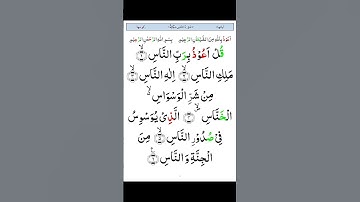 اَعُوْذُ بِاللّٰهِ مِنَ الشَّيْطٰنِ الرَّجِيْمِ بِسْمِ اللّٰهِ الرَّحْمٰنِ الرَّحِيْمِ
قُلْ اَعُوْذُ بِرَبِّ النَّاسِ ۙ﴿۱﴾
مَلِكِ النَّاسِ ۙ﴿۲﴾ اِلٰهِ النَّاسِ ۙ﴿۳﴾
مِنْ شَرِّ الْوَسْوَاسِ ۙ
الْخَنَّاسِ ۪ۙ﴿۴﴾ الَّذِیْ یُوَسْوِسُ
فِیْ صُدُوْرِ النَّاسِ ۙ﴿۵﴾ مِنَ
الْجِنَّةِ وَ النَّاسِ ﴿۶﴾